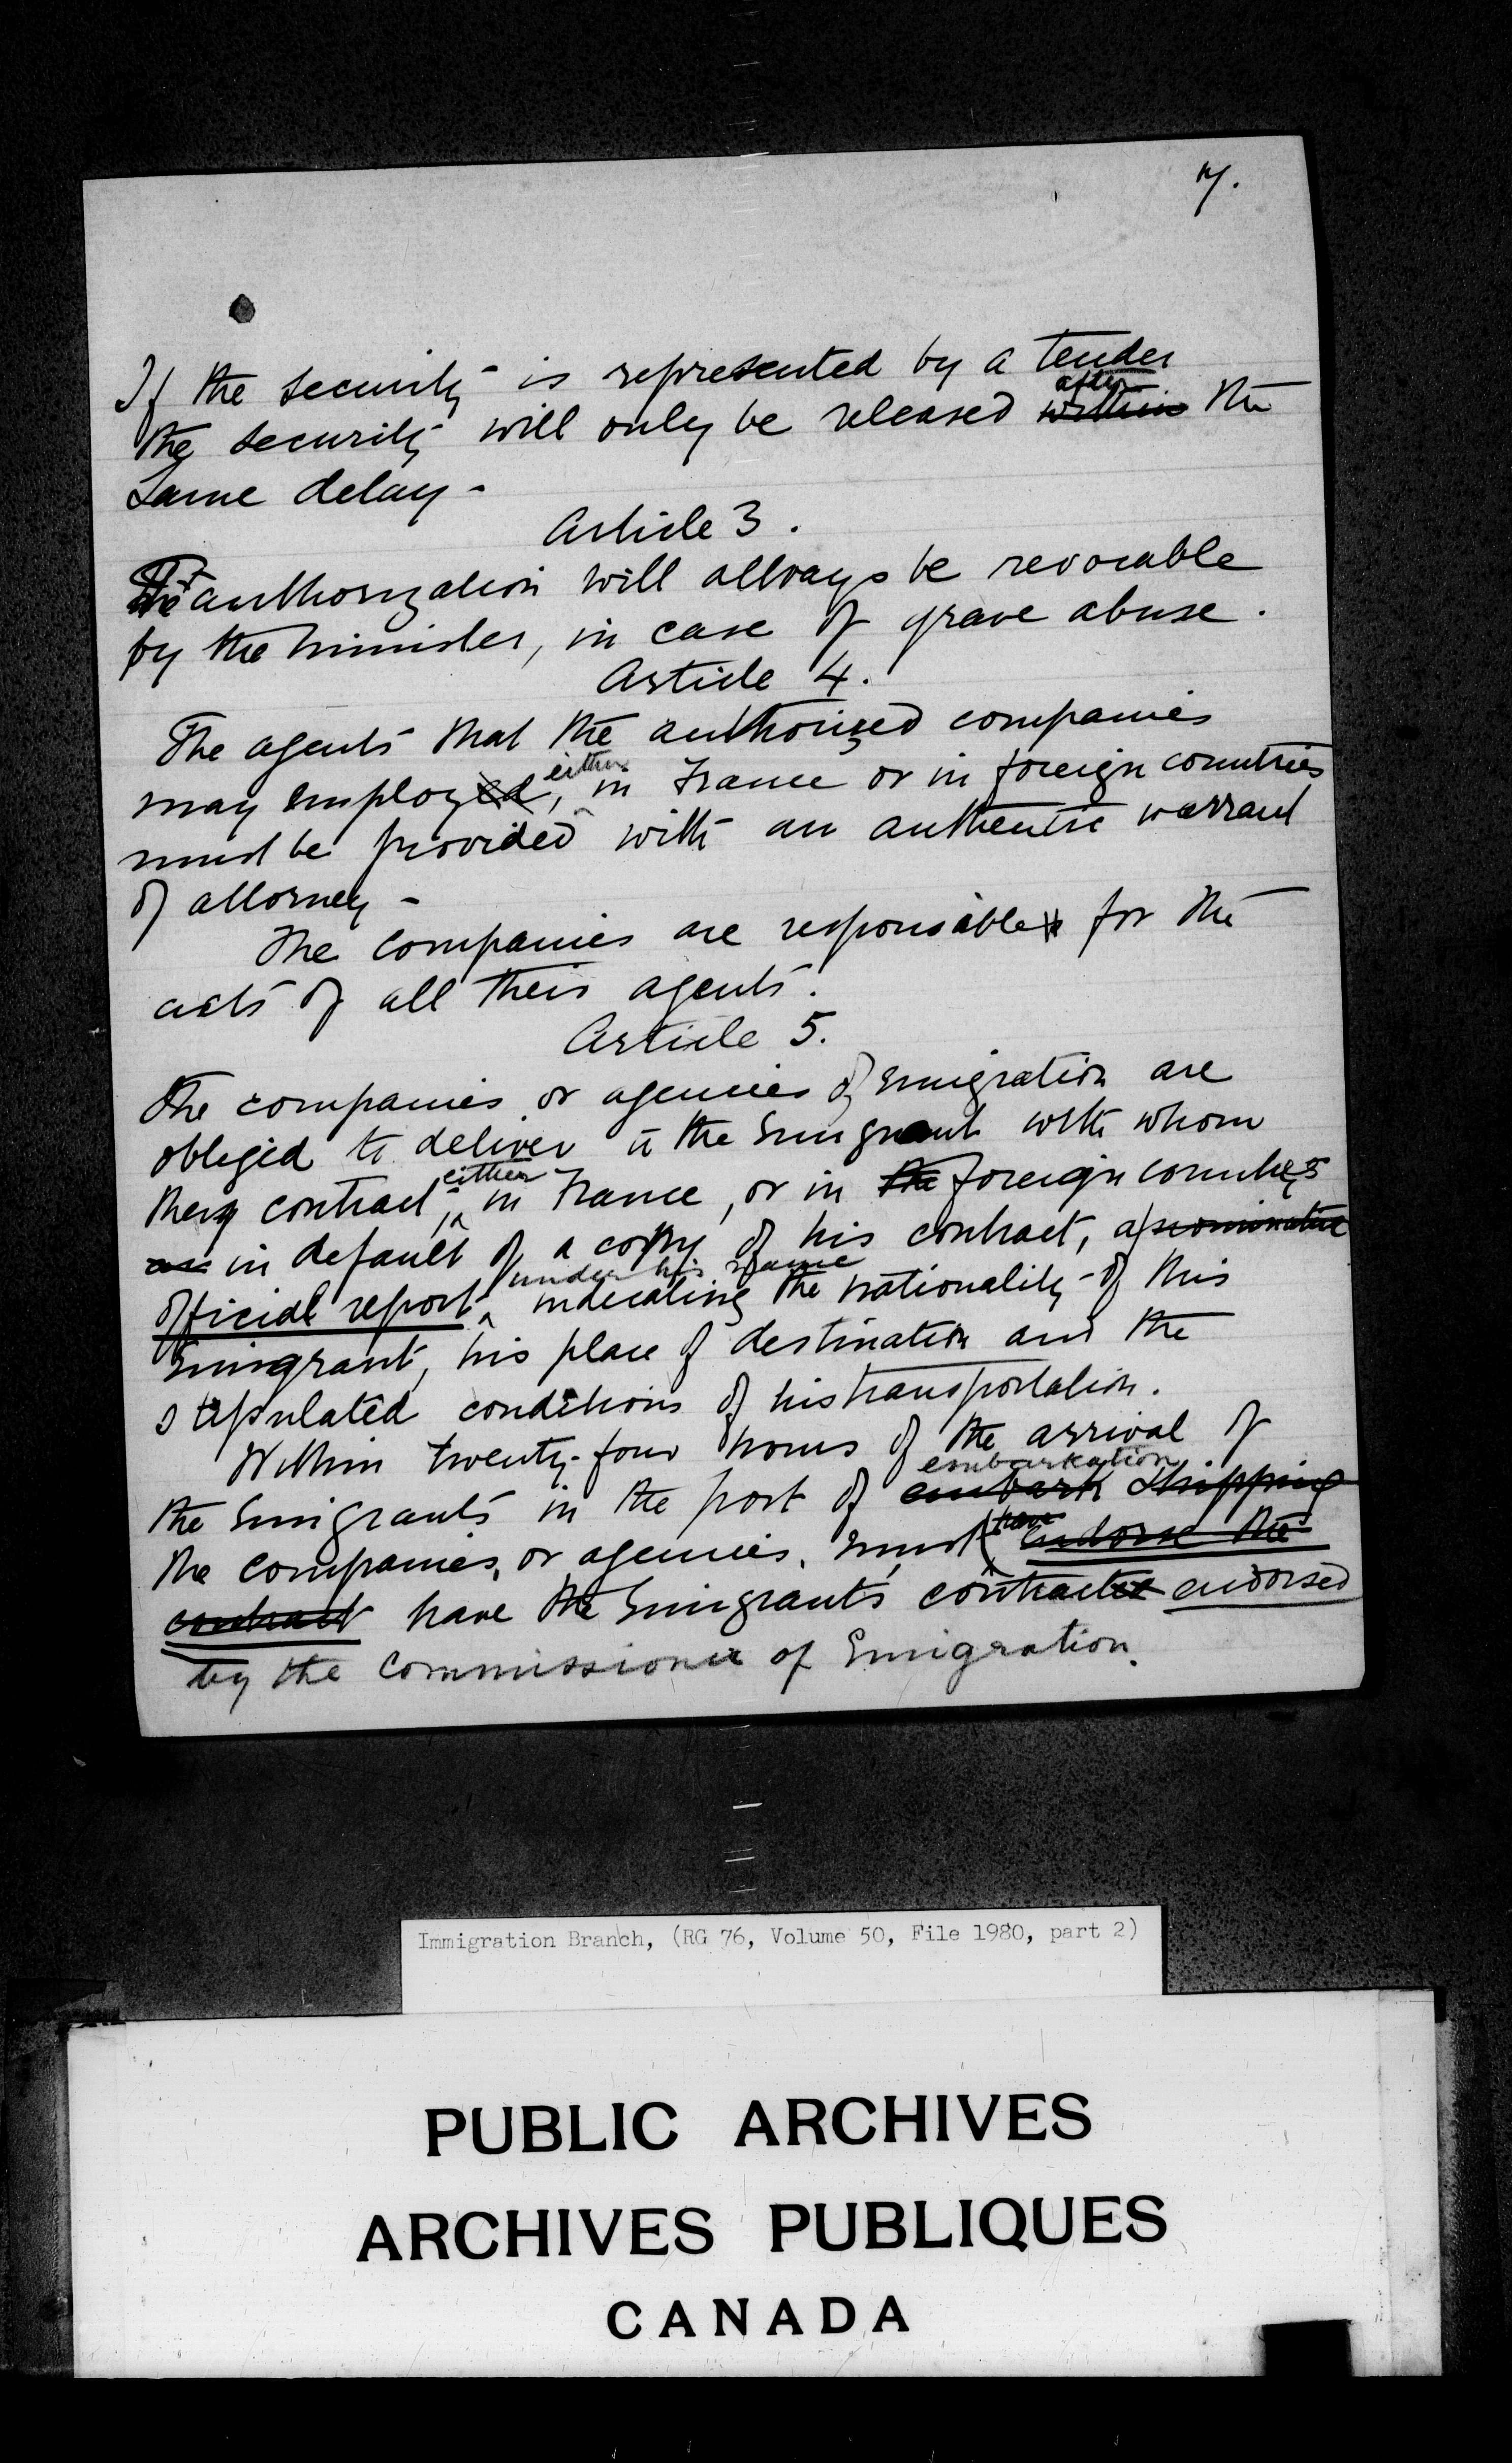 7.
If the security is represented by a tender
the security will only be released after within the
same delay -
Article 3.
The authorization will allways be revocable
by the minister, in case of grave abuse.
Article 4.
The agents that the authorized companies
may employed, either in France or in foreign countries
must be provided with an authentic warrant
of attorney -
The companies are responsable for the
acts of all their agents.
Article 5.
The companies or agencies of Emigration are
obliged to deliver to the Emigrant with whom
they contract, either in France, or in the foreign countries
or in default of a copy of his contract, a nominative
official report under his name indicating the nationality of this
Emigrant, his place of destination and the
stipulated conditions of his transportation.
Within twenty-four hours of the arrival of
the Emigrants in the port of embarkation embark shipping
the companies, or agencies, must have endorse the
contract have the Emigrants contracts endorsed
by the Commissioner of Emigration.
Immigration Branch, (RG 76, Volume 50, File 1980, part 2)
PUBLIC ARCHIVES
ARCHIVES PUBLIQUES
CANADA